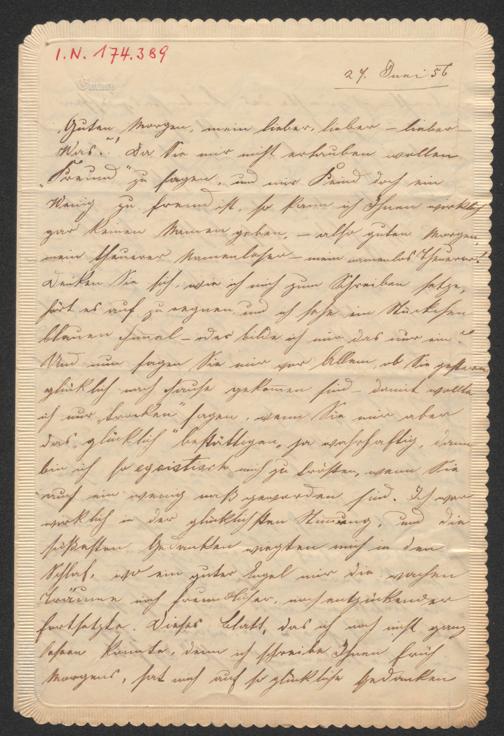 I.N. 174.389
27. Juni 56
Guten Morgen, mein lieber, lieber – lieber –
Was? Da Sie mir nicht erlauben wollen
"Freund" zu sagen, und mir Feind doch ein
wenig zu fremd ist, so kann ich Ihnen wirklich
gar keinen Namen geben, – also guten Morgen,
mein theuerer Namenloser – mein namenlos Theuerer!
Denken Sie sich, wie ich mich zum Schreiben setze,
hört es auf zu regnen und ich sehe ein Stückchen
blauen Himmel – oder bilde ich mir das nur ein?
Und nun sagen Sie mir vor Allem, ob Sie gestern
glücklich nach Hause gekommen sind, damit wollte
ich nur "trocken" sagen, wenn Sie mir aber
das "glücklich" bestättigen, ja wahrhaftig, dann
bin ich so egoistisch mich zu trösten, wenn Sie
auch ein wenig naß geworden sind. Ich war
wirklich in der glücklichsten Stimmung, und die
süßesten Gedanken wiegten mich in den
Schlaf, wo ein guter Engel mir die wachen
Träume noch freundlicher, noch entzückender
fortsetzte. Dieses Blatt, das ich noch nicht ganz
lesen konnte, denn ich schreibe Ihnen früh
Morgens, hat mich auf so glückliche Gedanken